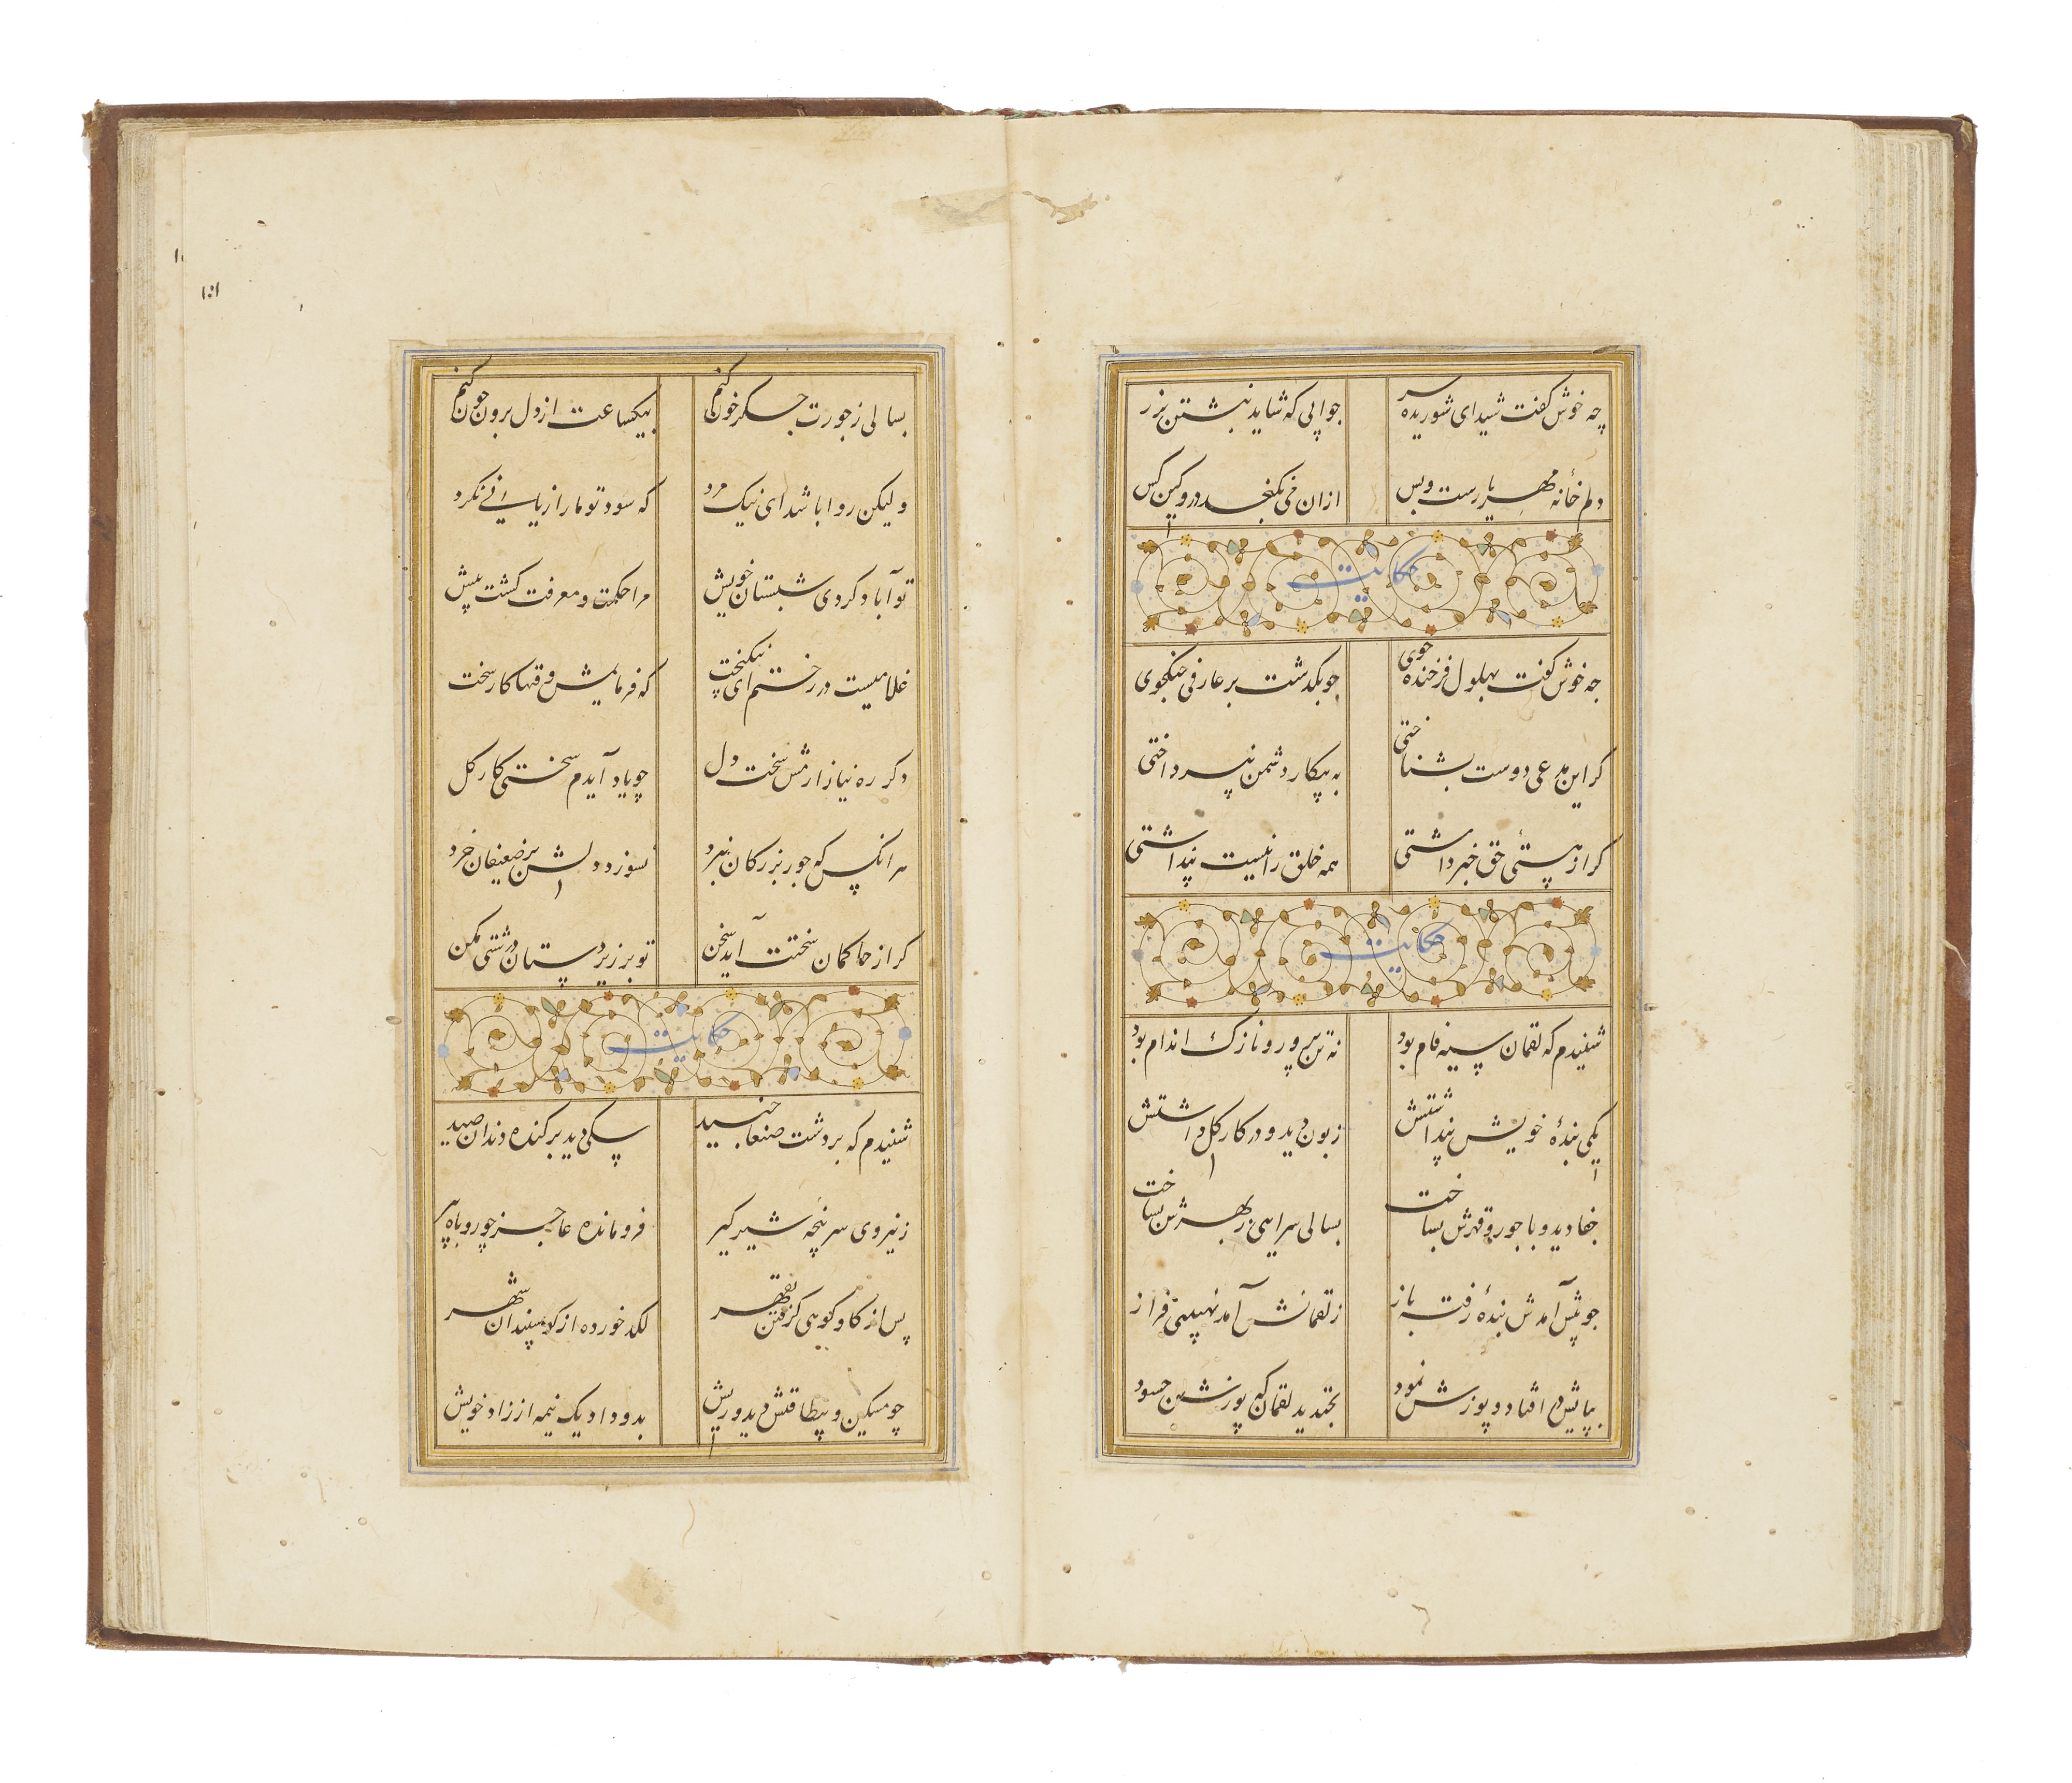 چه خوش کفت شیدای شوریده سر
جوابی که شاید نبشتن بزر
دلم خانهٔ مهر یارست و بس
ازان می نکنجد درو کین کس
حکایت
جه خوش کفت بهلول فرخنده خوی
جو بکذشت بر عارفی جنکجوی
کر این مدعی دوست بشناختی
به پیکار دشمن نپرداختی
کر از هستی حق خبر داشتی
همه خلق را نیست پنداشتی
حکایت
شنیدم که لقمان سیه فام بود
نه تن پرور و نازک اندام بود
یکی بندهٔ خویش پنداشتش
زبون دید و در کار کل داشتش
جفا دید و با جور و قهرش بساخت
بسالی سرایی ز بهرش بساخت
جو پیش آمدش بندهٔ رفته باز
ز لقمانش آمد نهیبی فراز
بپایش در افتاد و پوزش نمود
بخندید لقمان که پوزش جسود
بسالی ز جورت جکر خون کنم
بیکساعت از دل برون چون کنم
ولیکن روا باشد ای نیک مرد
که سود تو ما را زیانی نکرد
تو آباد کردی شبستان خویش
مرا حکمت و معرفت کشت بیش
غلامیست در رختم ای نیکبخت
که فرمایمش وقتها کار سخت
دکر ره نیازارمش سخت دل
چو یاد آیدم سختی کار کل
هر انکس که جور بزرکان نبرد
نسوزد دلش بر ضعیفان خرد
کر از حاکمان سختت آید سخن
تو بر زیردستان درشتی مکن
حکایت
شنیدم که بر دشت صنعا جنید
سکی دید برکنده دندان صید
ز نیروی سرپنجه شیر کیر
فرومانده عاجز چو روباه پیر
پس از کاو کوهی کرفتن بقهر
لکد خورده از کوسپندان شهر
چو مسکین و بیطاقتش دید و ریش
بدو داد یک نیمه از زاد خویش